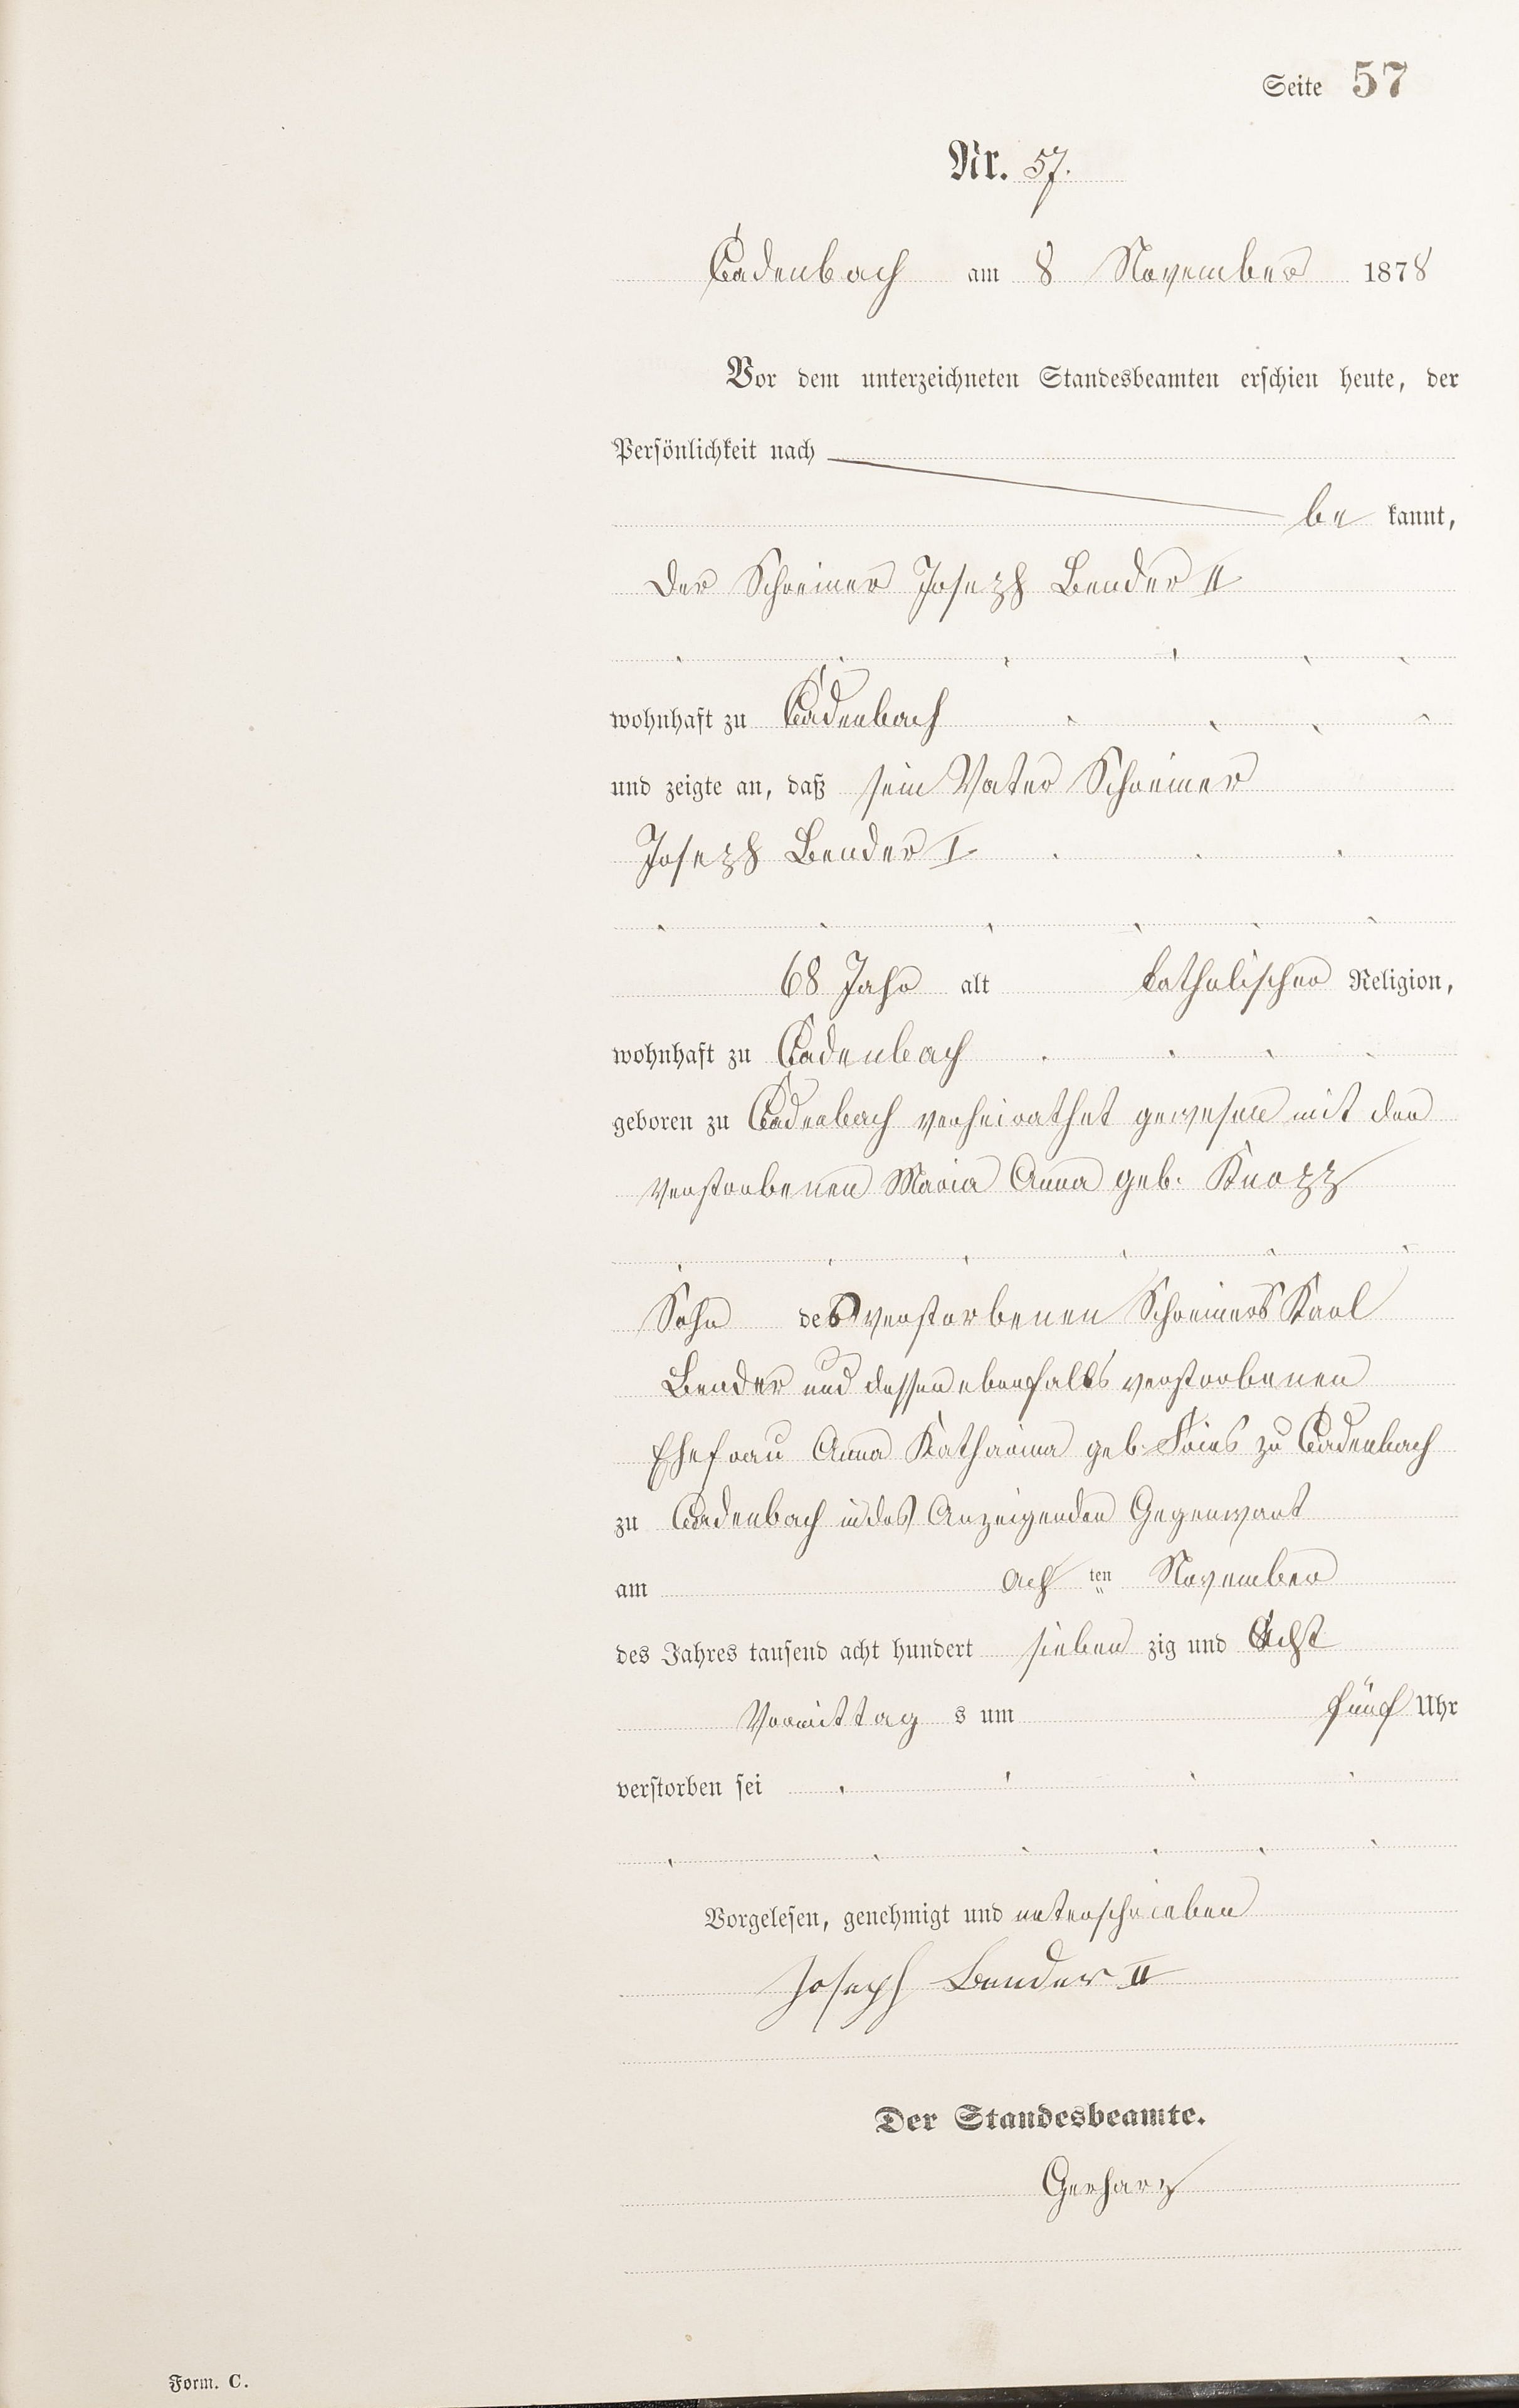 Seite 57
Nr. 57.
Cadenbach am 8 November 1878
Vor dem unterzeichneten Standesbeamten erschien heute, der
Persönlichkeit nach
be kannt,
der Schreiner Joseph Bender II
wohnhaft zu Cadenbach
und zeigte an, daß sein Vater Schreiner
Joseph Bender I
68 Jahr alt katholischer Religion,
wohnhaft zu Cadenbach
geboren zu Cadenbach verheirathet gewesen mit der
verstorbenen Maria Anna geb. Knopp
Sohn des verstorbenen Schreiners Karl
Bender und dessen ebenfalls verstorbenen
Ehefrau Anna Katharina geb. zu Cadenbach
zu Cadenbach in des Anzeigenden Gegenwart
am ach ten November
des Jahres tausend acht hundert sieben zig und Acht
Vormittag s um fünf Uhr
verstorben sei
Vorgelesen, genehmigt und unterschrieben
Joseph Bender II
Der Standesbeamte.
Gerharz
Form. C.